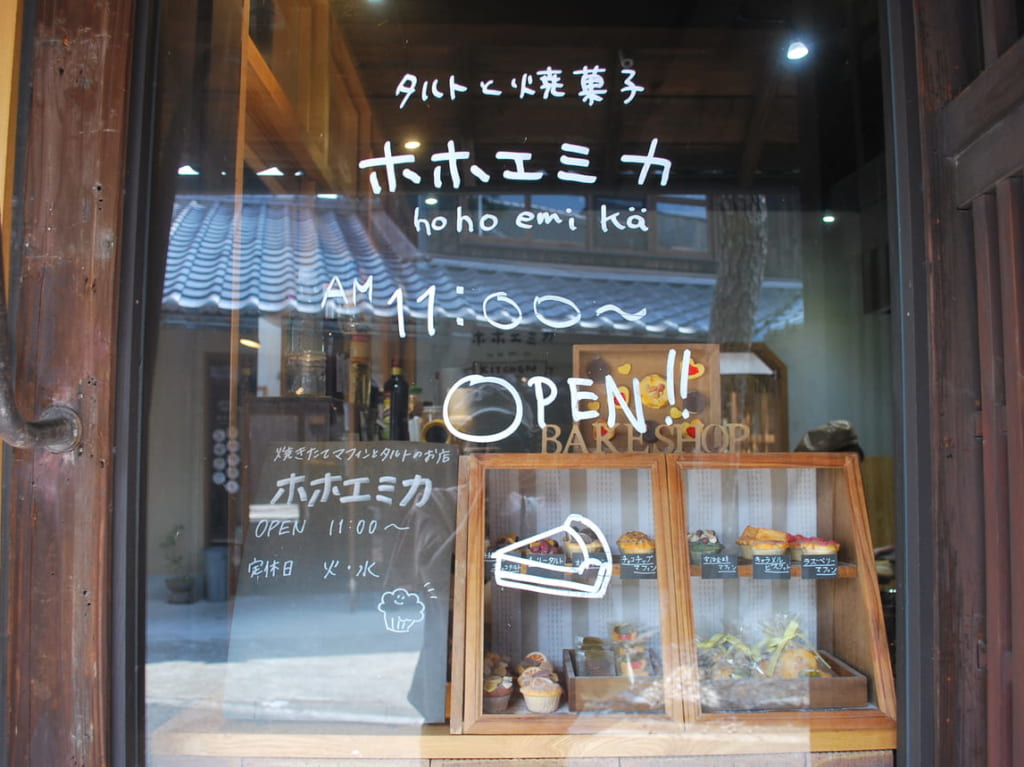 タルトと焼菓子
ホホエミカ
hoho emi kä
AM 11:00～
ホホエミカ
KITCHEN
OPEN!!
BAKESHOP
焼きたてマフィンとタルトのお店
ホホエミカ
OPEN 11:00～
定休日 火・水
チョコチップ
マフィン
マフィン
キャラメル
ビスケット
ラズベリー
マフィン